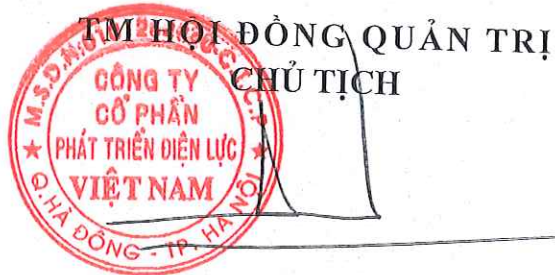 TM HỘI ĐỒNG QUẢN TRỊ
CHỦ TỊCH
CÔNG TY
CỔ PHẦN
PHÁT TRIỂN ĐIỆN LỰC
VIỆT NAM
Q. HÀ ĐÔNG - TP. HÀ NỘI